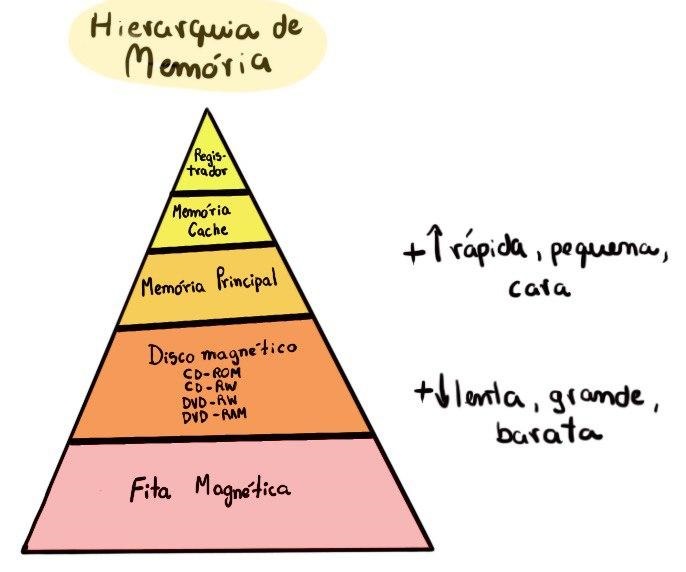 Hierarquia de
Memória
Regis-
trador
Memória
Cache
Memória Principal
Disco magnético
CD-ROM
CD-RW
DVD-RW
DVD-RAM
Fita Magnética
+↑rápida, pequena,
cara
+↓lenta, grande,
barata